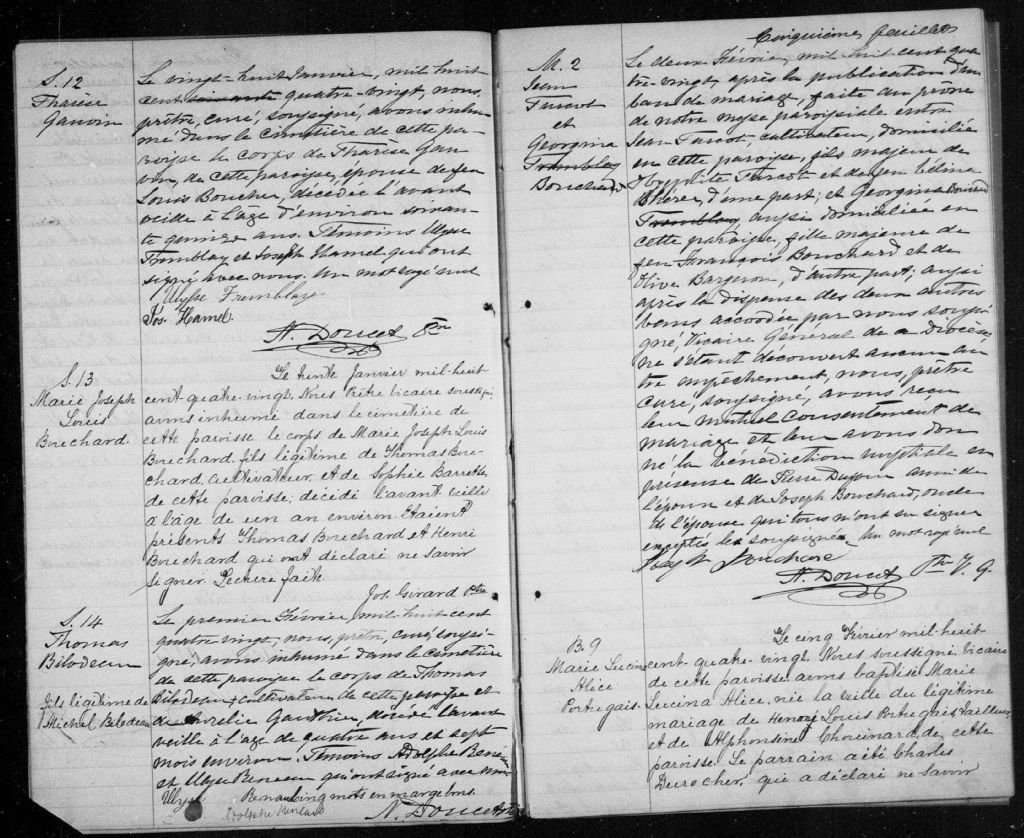 S. 12
Thérèse
Gauvin
Le vingt-huit Janvier, mil huit
cent soixante quatre-vingt, nous,
prêtre, curé, soussigné, avons inhu-
mé dans le cimetière de cette pa-
roisse le corps de Thérèse Gau
vin, de cette paroisse, épouse de feu
Louis Boucher, décédée l'avant
veille à l'âge d'environ soixan-
te quinze ans. Témoins Ulysse
Tremblay et Joseph Hamel qui ont
signé avec nous. Un mot rayé nul
Ulysse Tremblay
Jos. Hamel
N. Doucet Ptre
S. 13
Marie Joseph
Louis
Bouchard
Le trente Janvier mil-huit
cent-quatre-vingt. Nous Prêtre vicaire soussigné
avons inhumé dans le cimetière de
cette paroisse le corps de Marie Joseph Louis
Bouchard, fils légitime de Thomas Bou-
chard, Cultivateur et de Sophie Barrette
de cette paroisse; décédé l'avant veille
à l'âge de un an environ. Etaient
présents Thomas Bouchard et Henri
Bouchard qui ont déclaré ne savoir
signer. Lecture faite.
Jos. Girard Ptre
S. 14
Thomas
Bilodeau
fils légitime de
Michel Bilodeau
Le premier Février, mil-huit cent
quatre vingt, nous, prêtre, curé, soussi-
gné, avons inhumé dans le cimetière
de cette paroisse le corps de Thomas
Bilodeau, cultivateur de cette paroisse et
de Aurélie Gauthier, décédé l'avant
veille à l'âge de quatre ans et sept
mois environ. Témoins Adolphe
et Ulysse qui ont signé avec nous
Ulysse cinq mots en marge bons.
Adolphe
N. Doucet Ptre
Cinquième feuillet
M. 2
Jean
Turcot
et
Georgina
Tremblay
Bouchard
Le deux Février, mil huit cent qua
tre-vingt, après la publication d'un
ban de mariage, faite au prône
de notre messe paroissiale entre
Jean Turcot, cultivateur, domicilié
en cette paroisse, fils majeur de
Bpytite Turcot et de feu Célina
d'une part; et Georgina Bouchard
Tremblay aussi domiciliée en
cette paroisse, fille majeure de
feu François Bouchard et de
Olive Bergeron, d'autre part; aussi
après la dispense des deux autres
bans accordée par nous soussi
gné, Vicaire Général de ce diocèse,
ne s'étant découvert aucun au
tre empêchement, nous, prêtre
curé, soussigné, avons reçu
leur mutuel consentement de
mariage et leur avons don
né la bénédiction nuptiale en
présence de Pierre ami de
l'époux et de Joseph Bouchard, oncle
de l'épouse qui tous n'ont su signer
exceptés les soussignés. Un mot rayé nul
Joseph Bouchard
N. Doucet Ptre V. G.
B. 9
Marie Lucina
Alice
Portugais
Le cinq Février mil-huit
cent-quatre-vingt. Nous soussigné, Vicaire
de cette paroisse avons baptisé Marie
Lucina Alice, née la veille du légitime
mariage de Henri Louis Portugais, tailleur
et de Alphonsine Chouinard, de cette
paroisse. Le parrain a été Charles
Durocher, qui a déclaré ne savoir